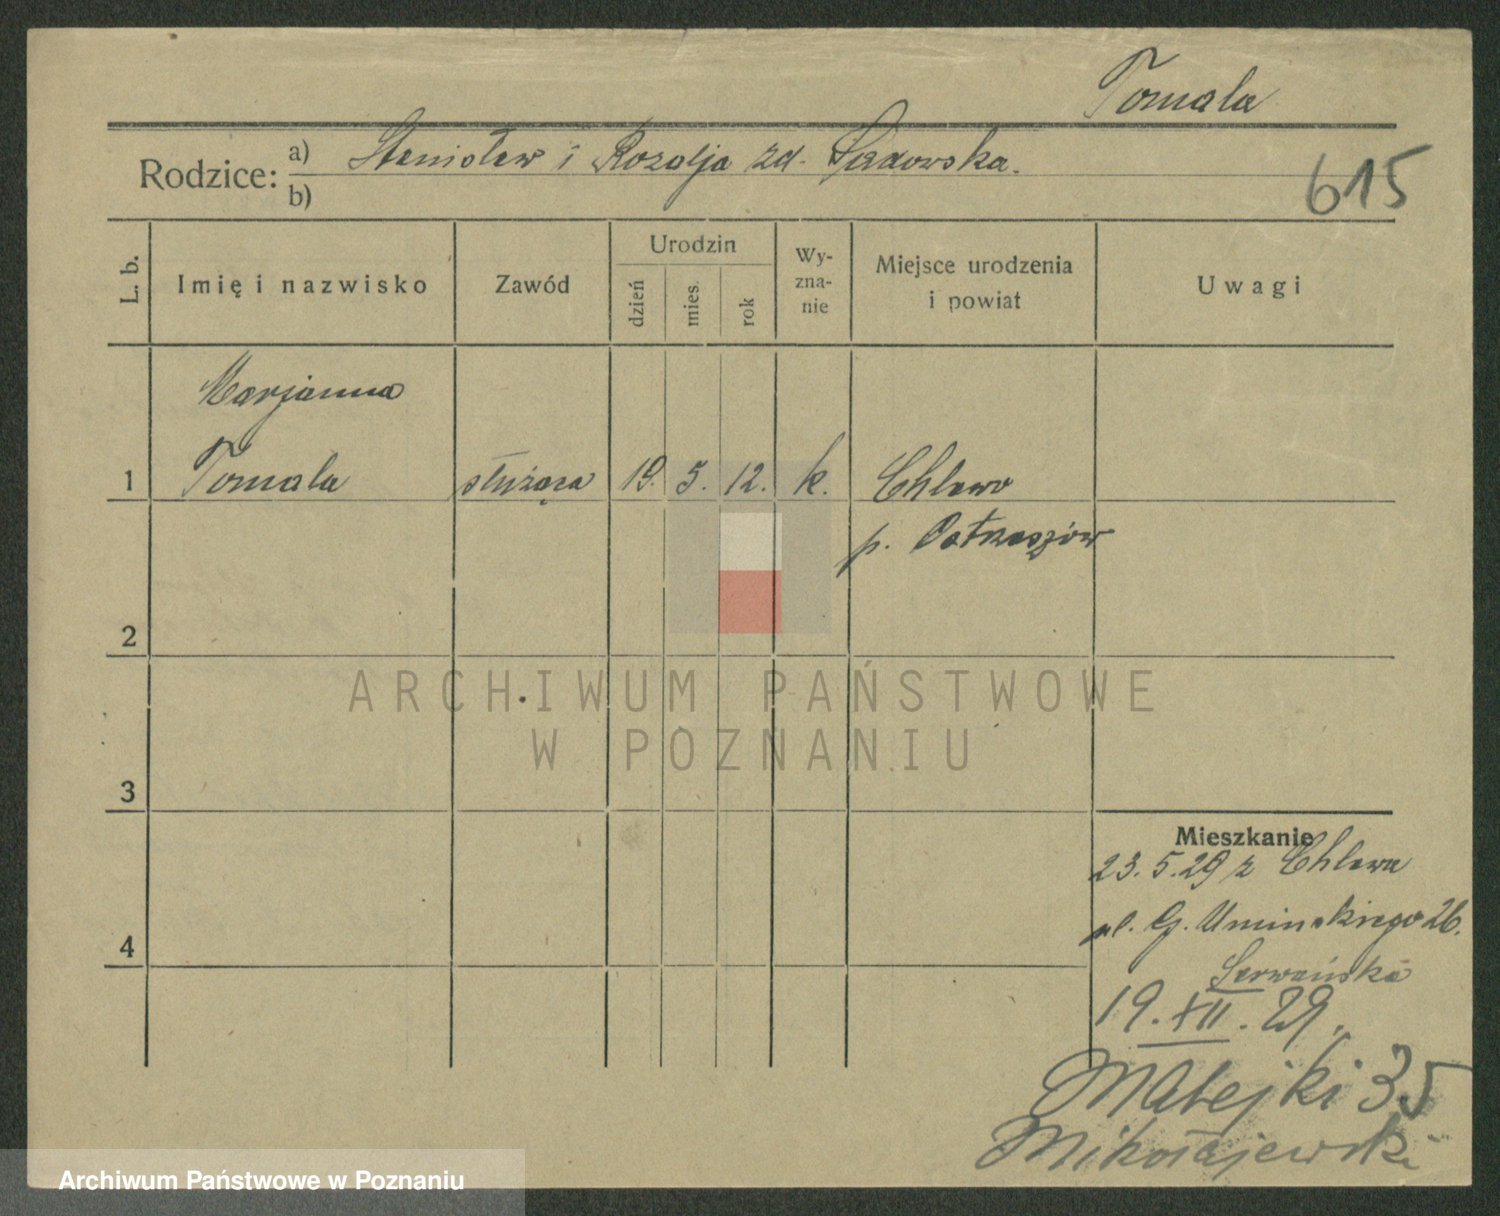 Tomala
Rodzice: a) Stanisław i Rozalja zd. Sadowska.
b)
615
L. b.
Imię i nazwisko
Zawód
Urodzin
dzień
mies.
rok
Wy-
zna-
nie
Miejsce urodzenia
i powiat
Uwagi
Marjanna
1 Tomala służąca 19. 5. 12. k. Chlewo
p. Ostrzeszów
2
ARCHIWUM PAŃSTWOWE
W POZNANIU
3
Mieszkanie
23.5.29 z Chlewa
ul. G. Umińskiego 26.
4
19. XII. 29.
Matejki 35
Mikołajewski
Archiwum Państwowe w Poznaniu